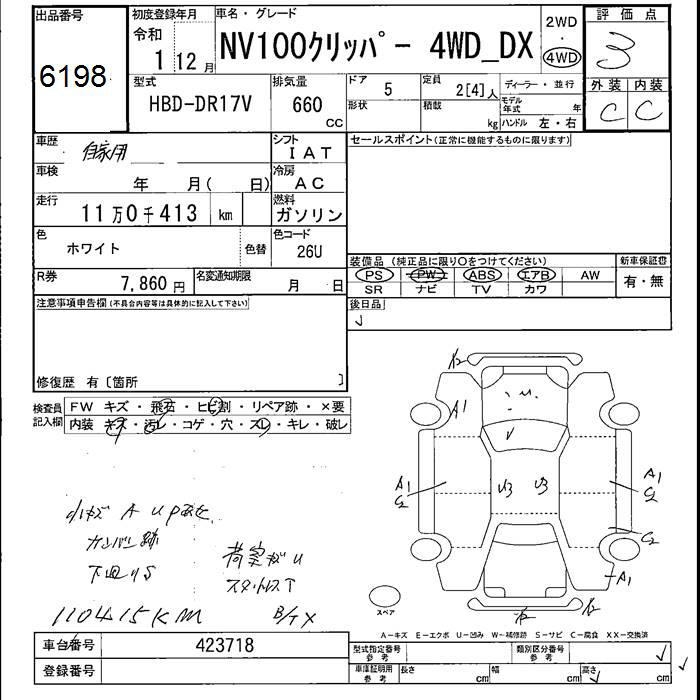 出品番号
6198
初度登録年月
令和
1 12 月
車名・グレード
NV100クリッパー 4WD_DX
2WD
・
4WD
評価点
3
型式
HBD-DR17V
排気量
660
CC
ドア
5
形状
定員
2[4]人
積載
kg
ディーラー・並行
モデル年式 年
ハンドル 左・右
外装 内装
C C
車歴
自家用
シフト
IAT
車検
年 月( 日)
冷房
AC
走行
11万0千413 km
燃料
ガソリン
色
ホワイト
色替
色コード
26U
R券
7,860円
名変通知期限
月 日
セールスポイント(正常に機能するものに限ります)
装備品(純正品に限り○をつけてください)
PS PW ABS エアB AW
SR ナビ TV カワ
新車保証書
有・無
後日品
注意事項申告欄(不具合内容等は具体的に記入して下さい)
修復歴 有〔箇所 〕
検査員
記入欄
FW キズ・飛石・ヒビ割・リペア跡・×要
内装 キズ・汚レ・コゲ・穴・スレ・キレ・破レ
A1
U3 U3
A1
C2
A1
C2
C2
A1
スペア
小キズ A U P
カンバン跡
下廻りS
荷室キU
スタットレス
110415KM
B/T X
A-キズ E-エクボ U-凹み W-補修跡 S-サビ C-腐食 XX-交換済
車台番号
423718
登録番号
型式指定番号
参考
類別区分番号
参考
車庫証明用
参考
長さ cm
幅 cm
高さ cm